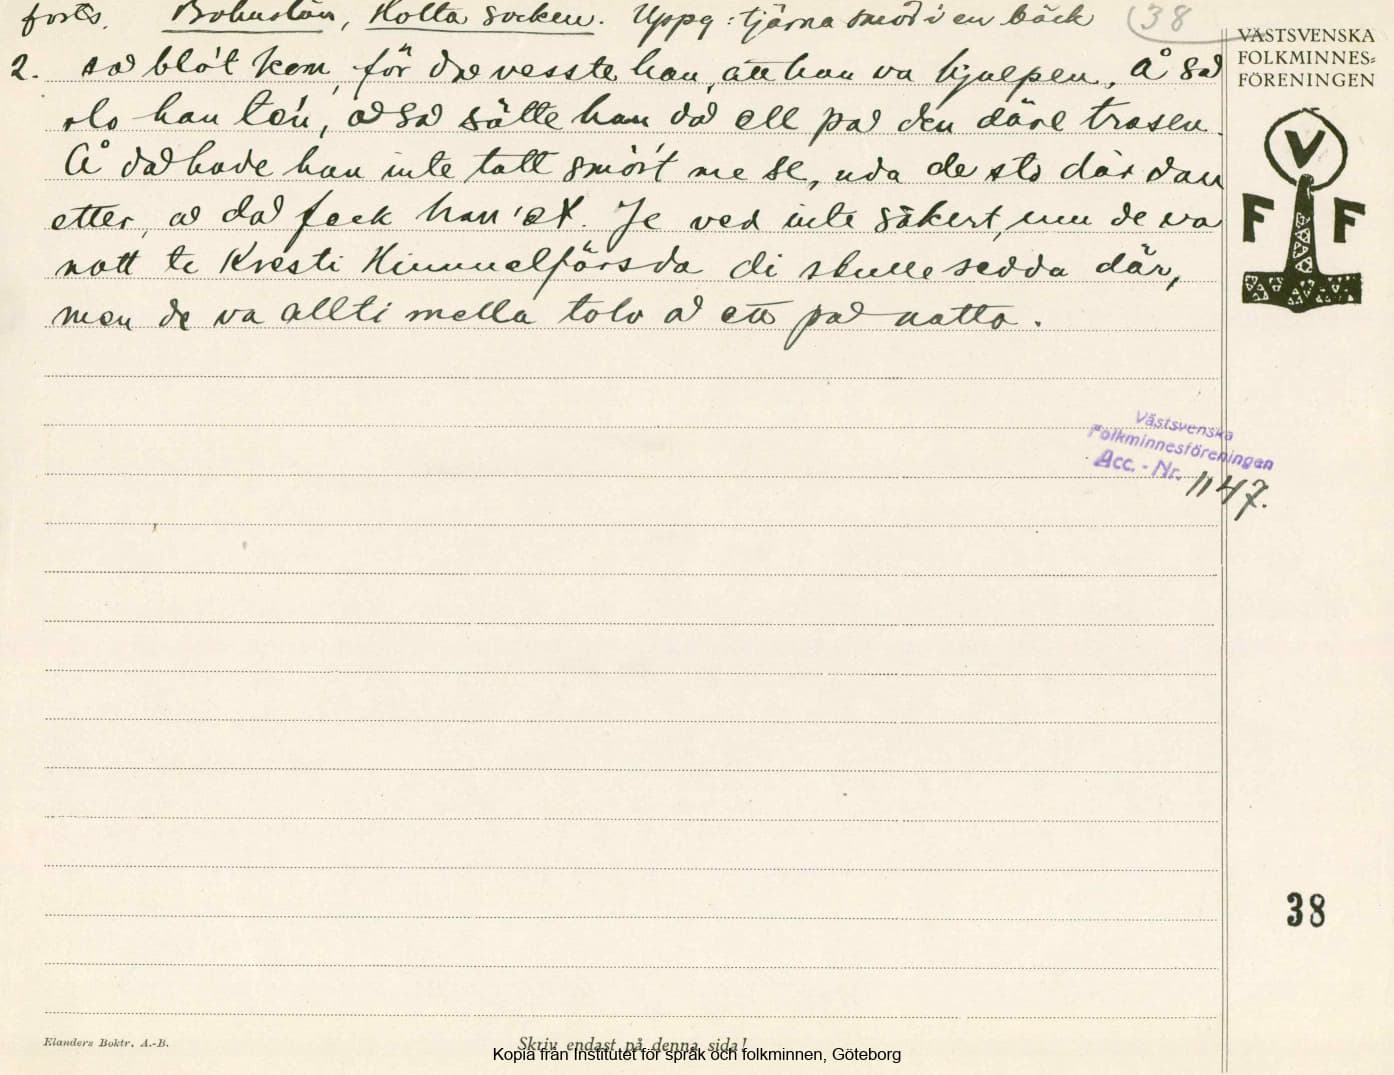 forts. Bohuslän, Holta socken. Uppg: tjärna smör i en bäck (38
2. så blót kom, för då vesste han, att han va hjulpen. Å så
slo han te'n, å så sätte han då ell på den däre trasen.
Å då hade han inte tatt smör't me se, uda de sto där dan
etter, å då feck han'et. Je ved inte säkert, um de va
natt te Kresti Himmelfärsda di skulle sedda där,
men de va allti mella tolv å ett på natta.
VÄSTSVENSKA
FOLKMINNES-
FÖRENINGEN
V
F F
Västsvenska
Folkminnesföreningen
Acc. - Nr. 1147.
38
Elanders Boktr. A.-B.
Skriv endast på denna sida!
Kopia från Institutet för språk och folkminnen, Göteborg